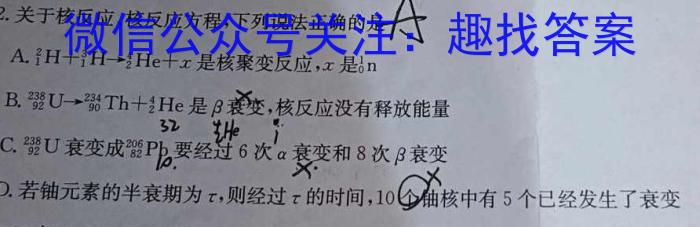 2.关于核反应、核反应方程,下列说法正确的是 A
微信公众号关注：趣找答案
A. ²₁H+³₁H→⁴₂He+x 是核聚变反应,x 是¹₀n
B. ²³⁸₉₂U→²³⁴₉₀Th+⁴₂He 是 β 衰变,核反应没有释放能量
32 ⁴₂He
C. ²³⁸₉₂U 衰变成²⁰⁶₈₂Pb,要经过 6 次 α 衰变和 8 次 β 衰变
D. 若铀元素的半衰期为 τ,则经过 τ 的时间,10 个铀核中有 5 个已经发生了衰变